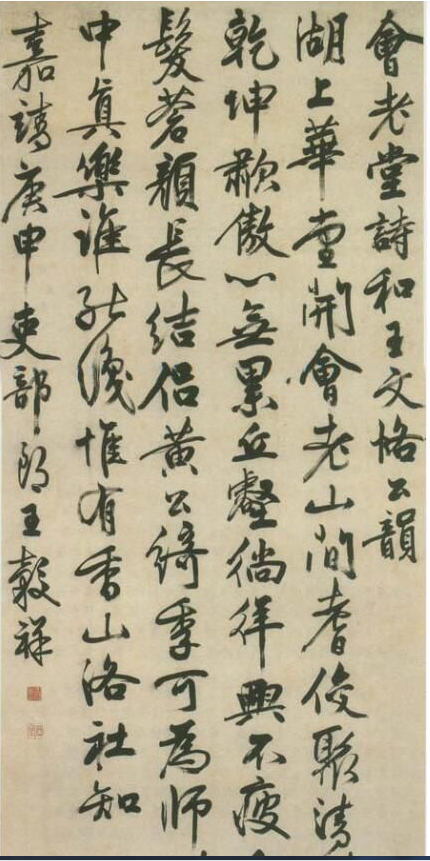 會老堂詩和王文恪公韻
湖上華堂開會老山間耆俊聚清
乾坤歗傲心無累丘壑徜徉興不疲
髮蒼顏長結侶黃公綺季可為師
中真樂誰能識惟有香山洛社知
嘉靖庚申吏部郎王穀祥